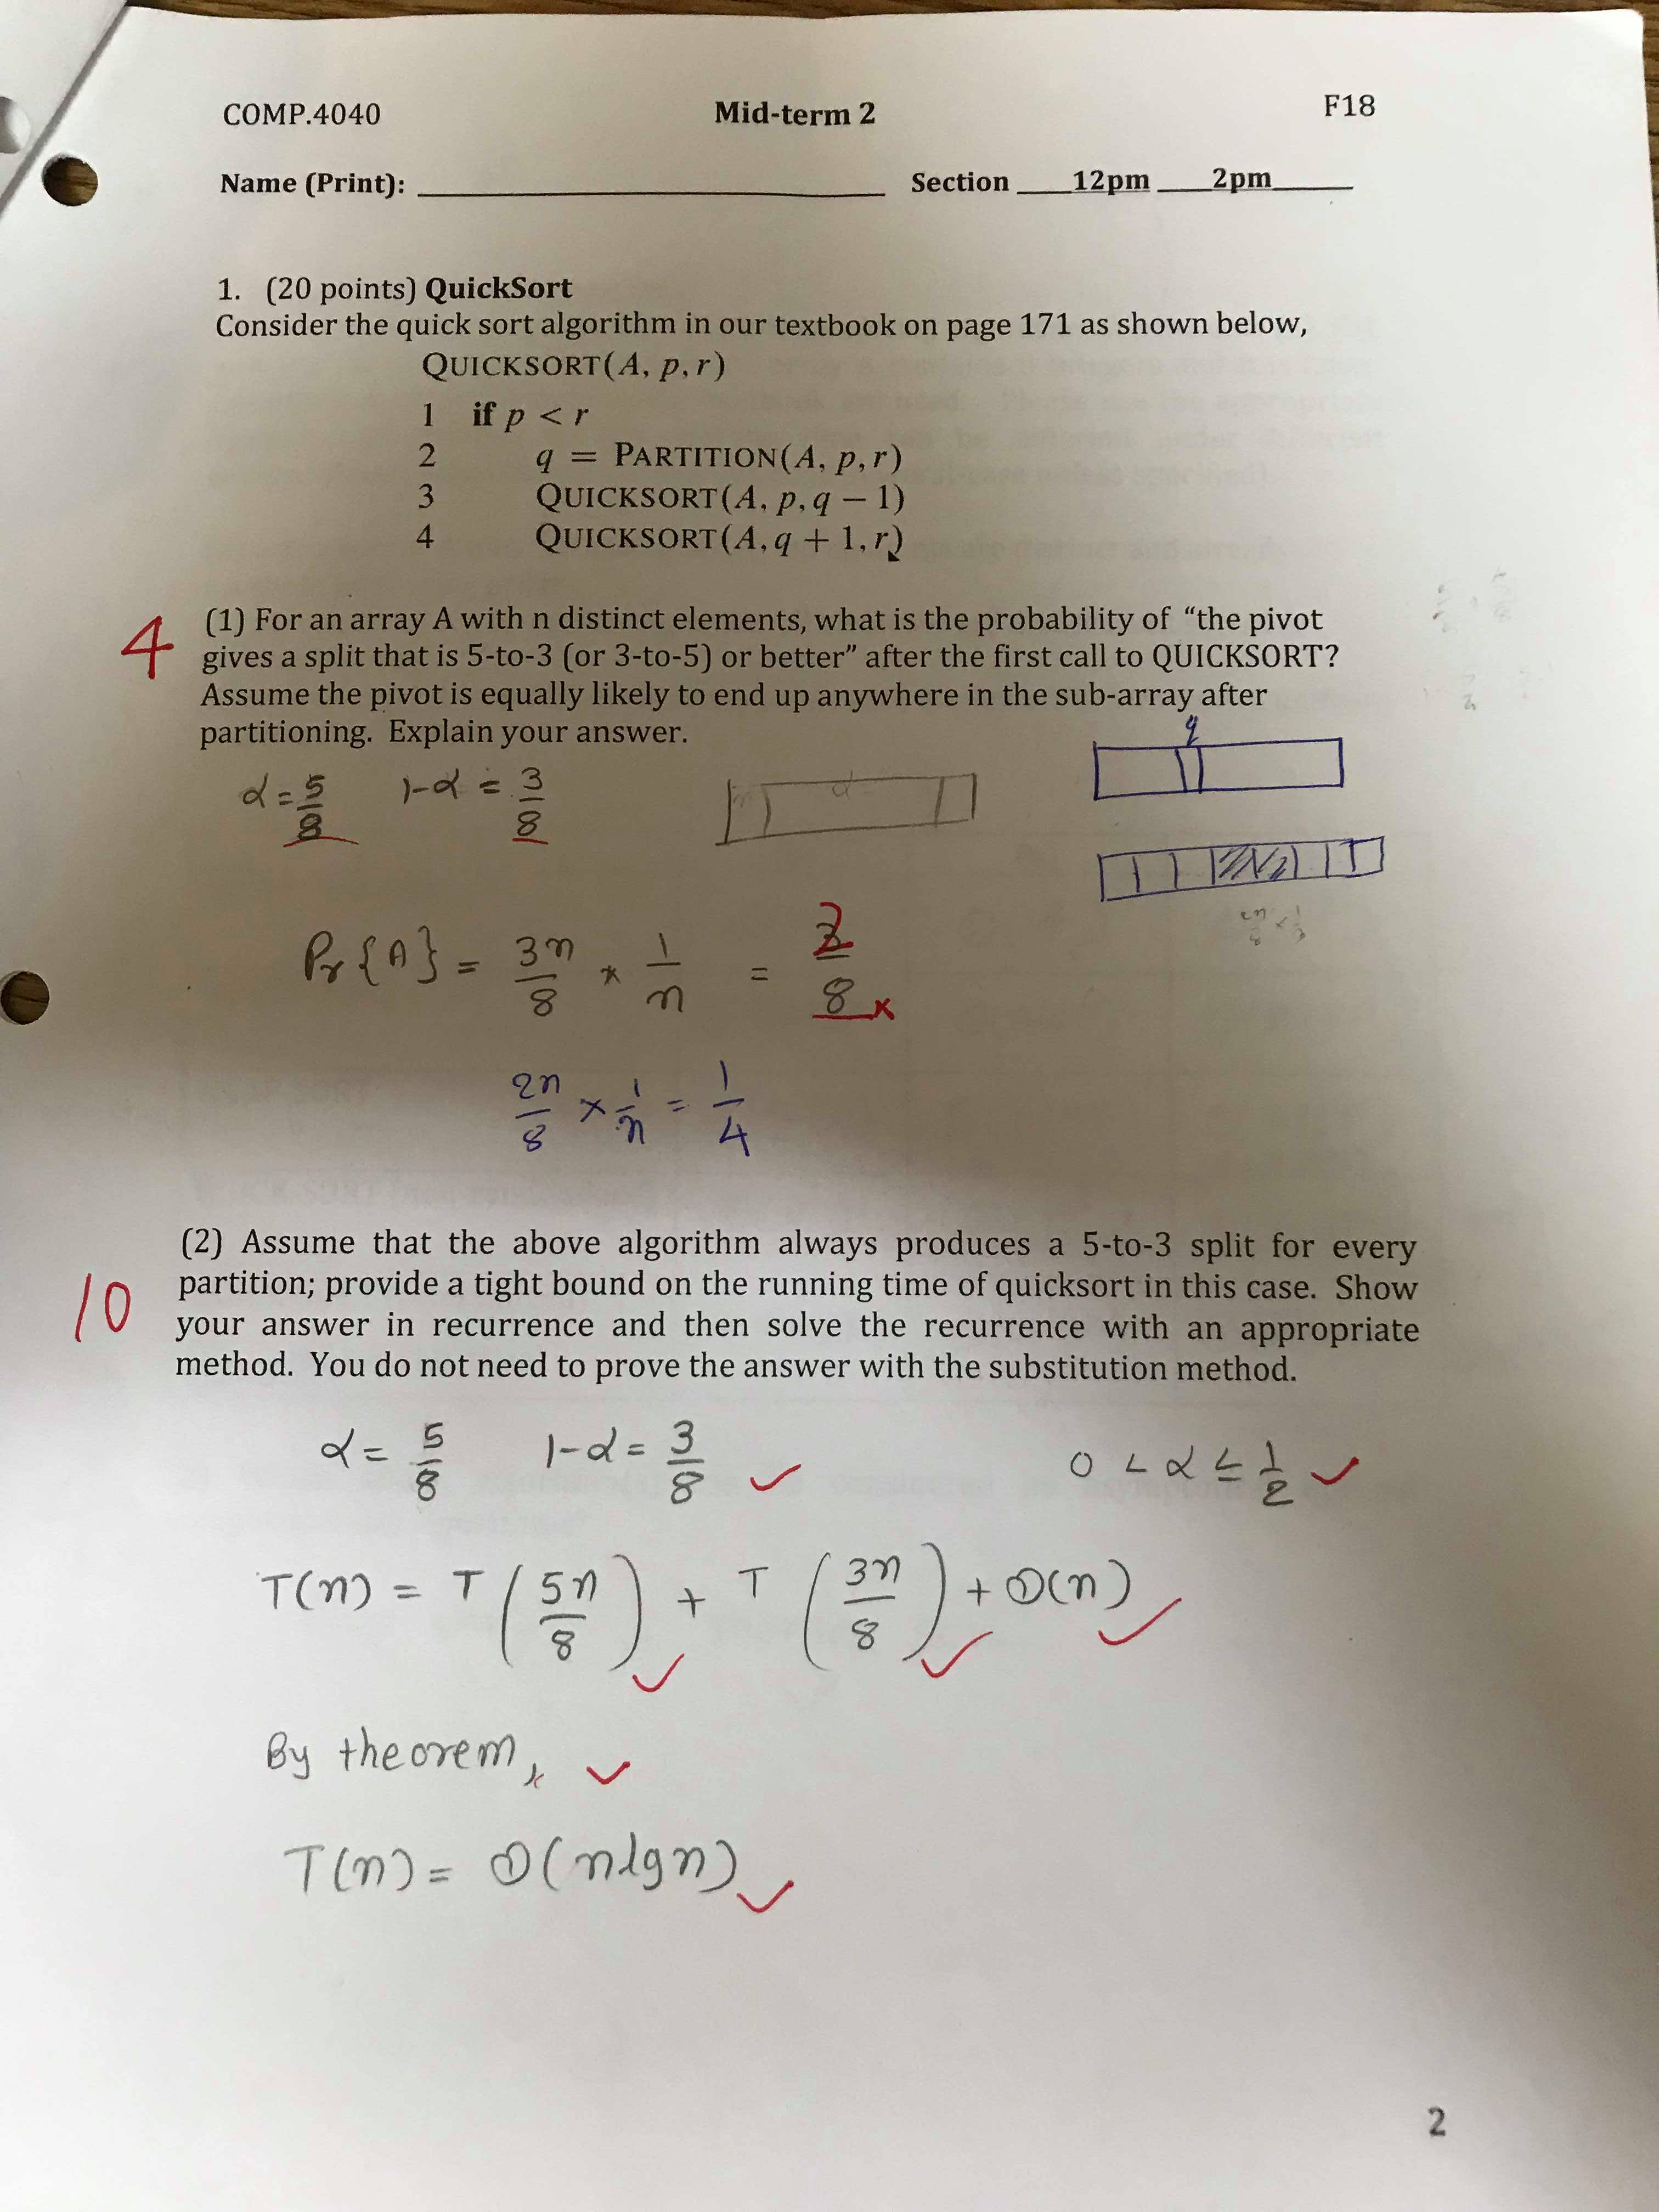 COMP.4040 Mid-term 2 F18
Name (Print): ____________ Section ____12pm ____2pm______
1. (20 points) QuickSort
Consider the quick sort algorithm in our textbook on page 171 as shown below,
QUICKSORT(A, p, r)
1 if p < r
2 q = PARTITION(A, p, r)
3 QUICKSORT(A, p, q − 1)
4 QUICKSORT(A, q + 1, r)
4
(1) For an array A with n distinct elements, what is the probability of "the pivot
gives a split that is 5-to-3 (or 3-to-5) or better" after the first call to QUICKSORT?
Assume the pivot is equally likely to end up anywhere in the sub-array after
partitioning. Explain your answer.
q
α = 5/8 1-α = 3/8
α
Pr{A} = 3n/8 * 1/n = 2/8 x
2n/8 × 1/n = 1/4
(2) Assume that the above algorithm always produces a 5-to-3 split for every
10
partition; provide a tight bound on the running time of quicksort in this case. Show
your answer in recurrence and then solve the recurrence with an appropriate
method. You do not need to prove the answer with the substitution method.
α = 5/8 1-α = 3/8 ✓ 0 < α ≤ 1/2 ✓
T(n) = T(5n/8) ✓ + T(3n/8) ✓ + Θ(n) ✓
By theorem, ✓
T(n) = Θ(n lg n) ✓
2